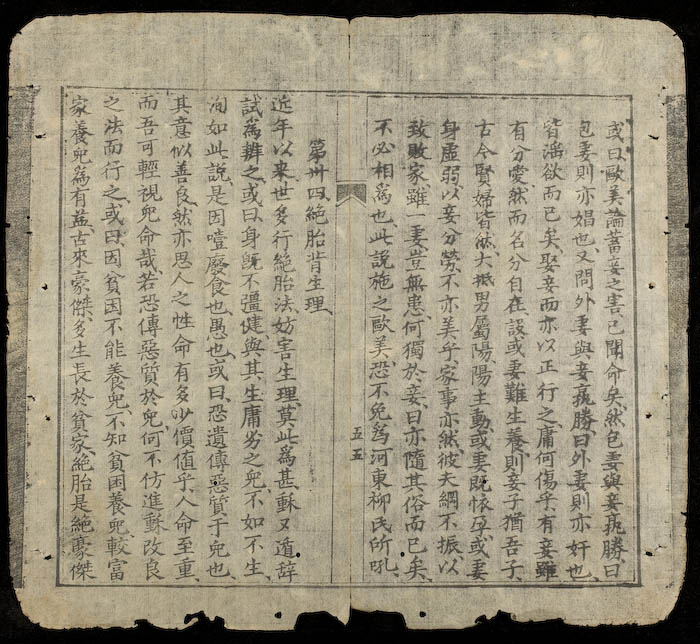 或曰、歐美論蓄妾之害、已聞命矣、然包妻與妾孰勝、曰
包妻則亦娼也、又問外妻與妾孰勝、曰外妻則亦奸也、
皆淫欲而已矣、娶妾而亦以正行之、庸何傷乎、有妾雖
有分愛、然而名分自在、設或妻難生養、則妾子猶吾子、
古今賢婦皆然、大抵男屬陽、陽主動、或妻既懷孕、或妻
身虛弱、以妾分勞、不亦美乎、家事亦然、彼夫綱不振、以
致敗家、雖一妻豈無患、何獨於妾、曰亦隨其俗而已矣、
不必相為也、此說施之歐美、恐不免為河東柳氏所吼、
五五
第卅四、絕胎背生理、
近年以來、世多行絕胎法、妨害生理、莫此為甚、穌又遁辭
試為辨之、或曰、身既不彊健、與其生庸劣之兒、不如不生、
洵如此說、是因噎廢食也、愚也、或曰、恐遺傳惡質于兒也、
其意似善良、然亦思人之性命有多少價值乎、人命至重、
而吾可輕視兒命哉、若恐傳惡質於兒、何不仿進穌改良
之法而行之、或曰、因貧困不能養兒、不知貧困養兒、較富
家養兒為有益、古來豪傑、多生長於貧家、絕胎是絕豪傑